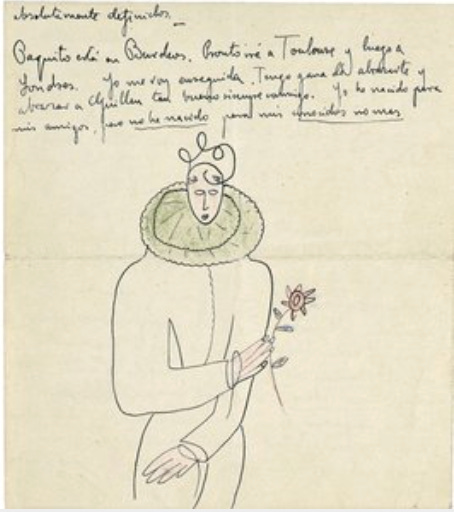 absolutamente definidos._
Paquito está en Burdeos. Pronto iré a Toulouse y luego a
Londres. Yo me voy enseguida. Tengo gana de abrazarte y
abrazar a Guillen tan bueno siempre conmigo. Yo he nacido para
mis amigos, pero no he nacido para mis conocidos no mas